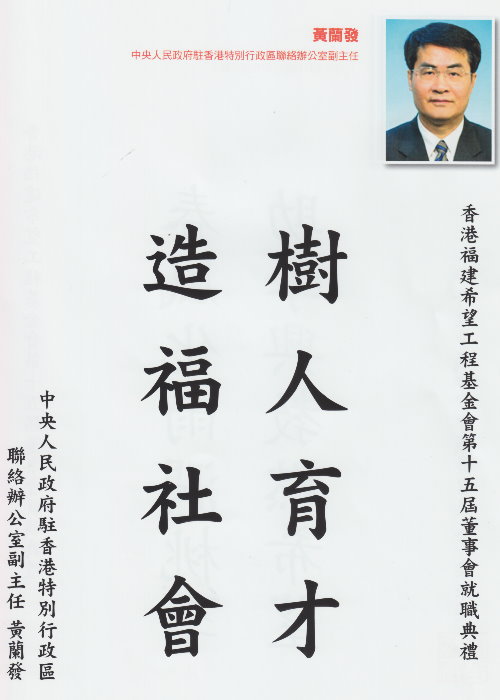 黃蘭發
中央人民政府駐香港特別行政區聯絡辦公室副主任
香港福建希望工程基金會第十五屆董事會就職典禮
樹人育才
造福社會
中央人民政府駐香港特別行政區
聯絡辦公室副主任 黃蘭發